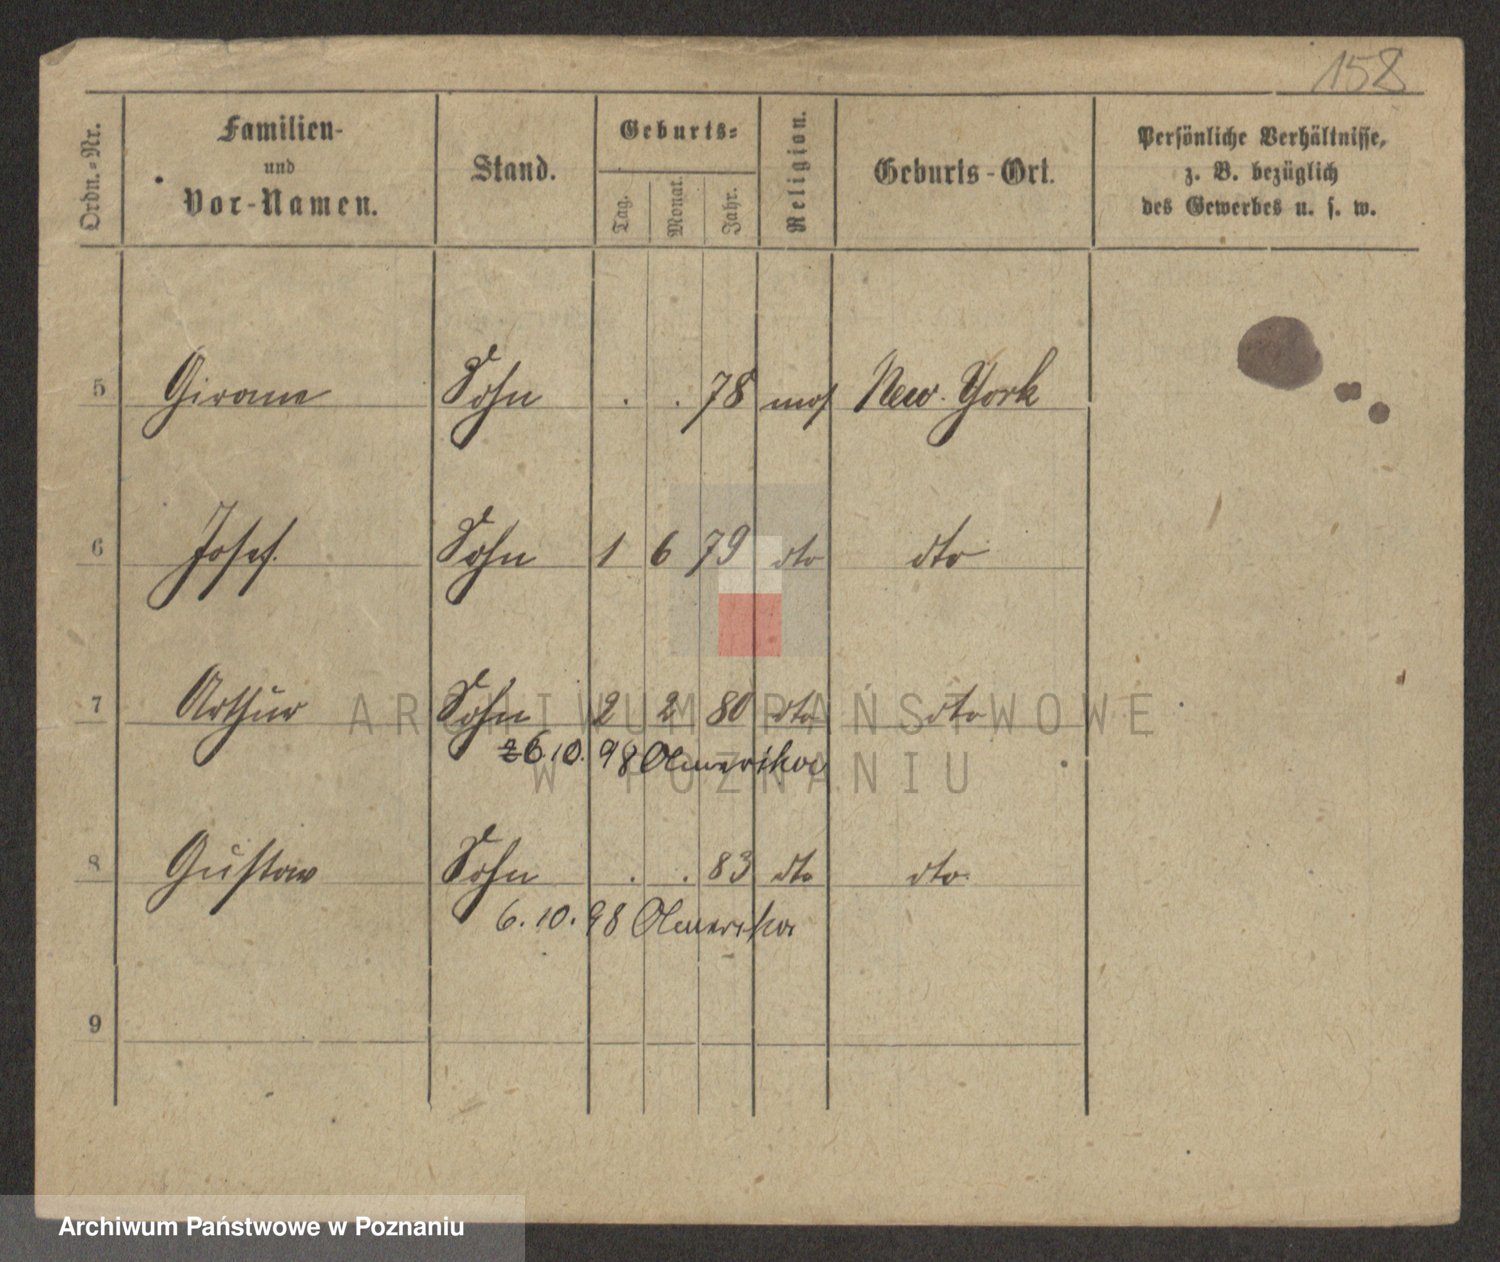 158
Ordn.-Nr. Familien- und Vor-Namen. Stand. Geburts- Tag. Monat. Jahr. Religion. Geburts-Ort. Persönliche Verhältnisse, z. B. bezüglich des Gewerbes u. s. w.
5 Girome Sohn . . 78 mos New-York
6 Josef. Sohn 1 6 79 dto dto
7 Arthur Sohn 2 2 80 dto dto
6.10.98 Amerika
8 Gustav Sohn . . 83 dto dto.
6.10.98 Amerika
9
ARCHIWUM PAŃSTWOWE
W POZNANIU
Archiwum Państwowe w Poznaniu